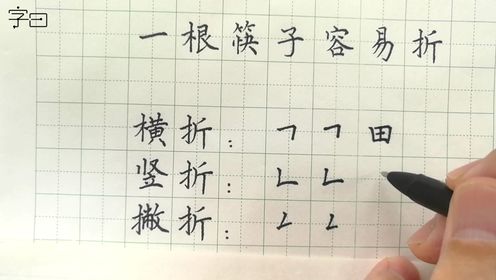 字曰
一根筷子容易折
横折：㇕ ㇕ 田
竖折：㇗ ㇗
撇折：㇜ ㇜